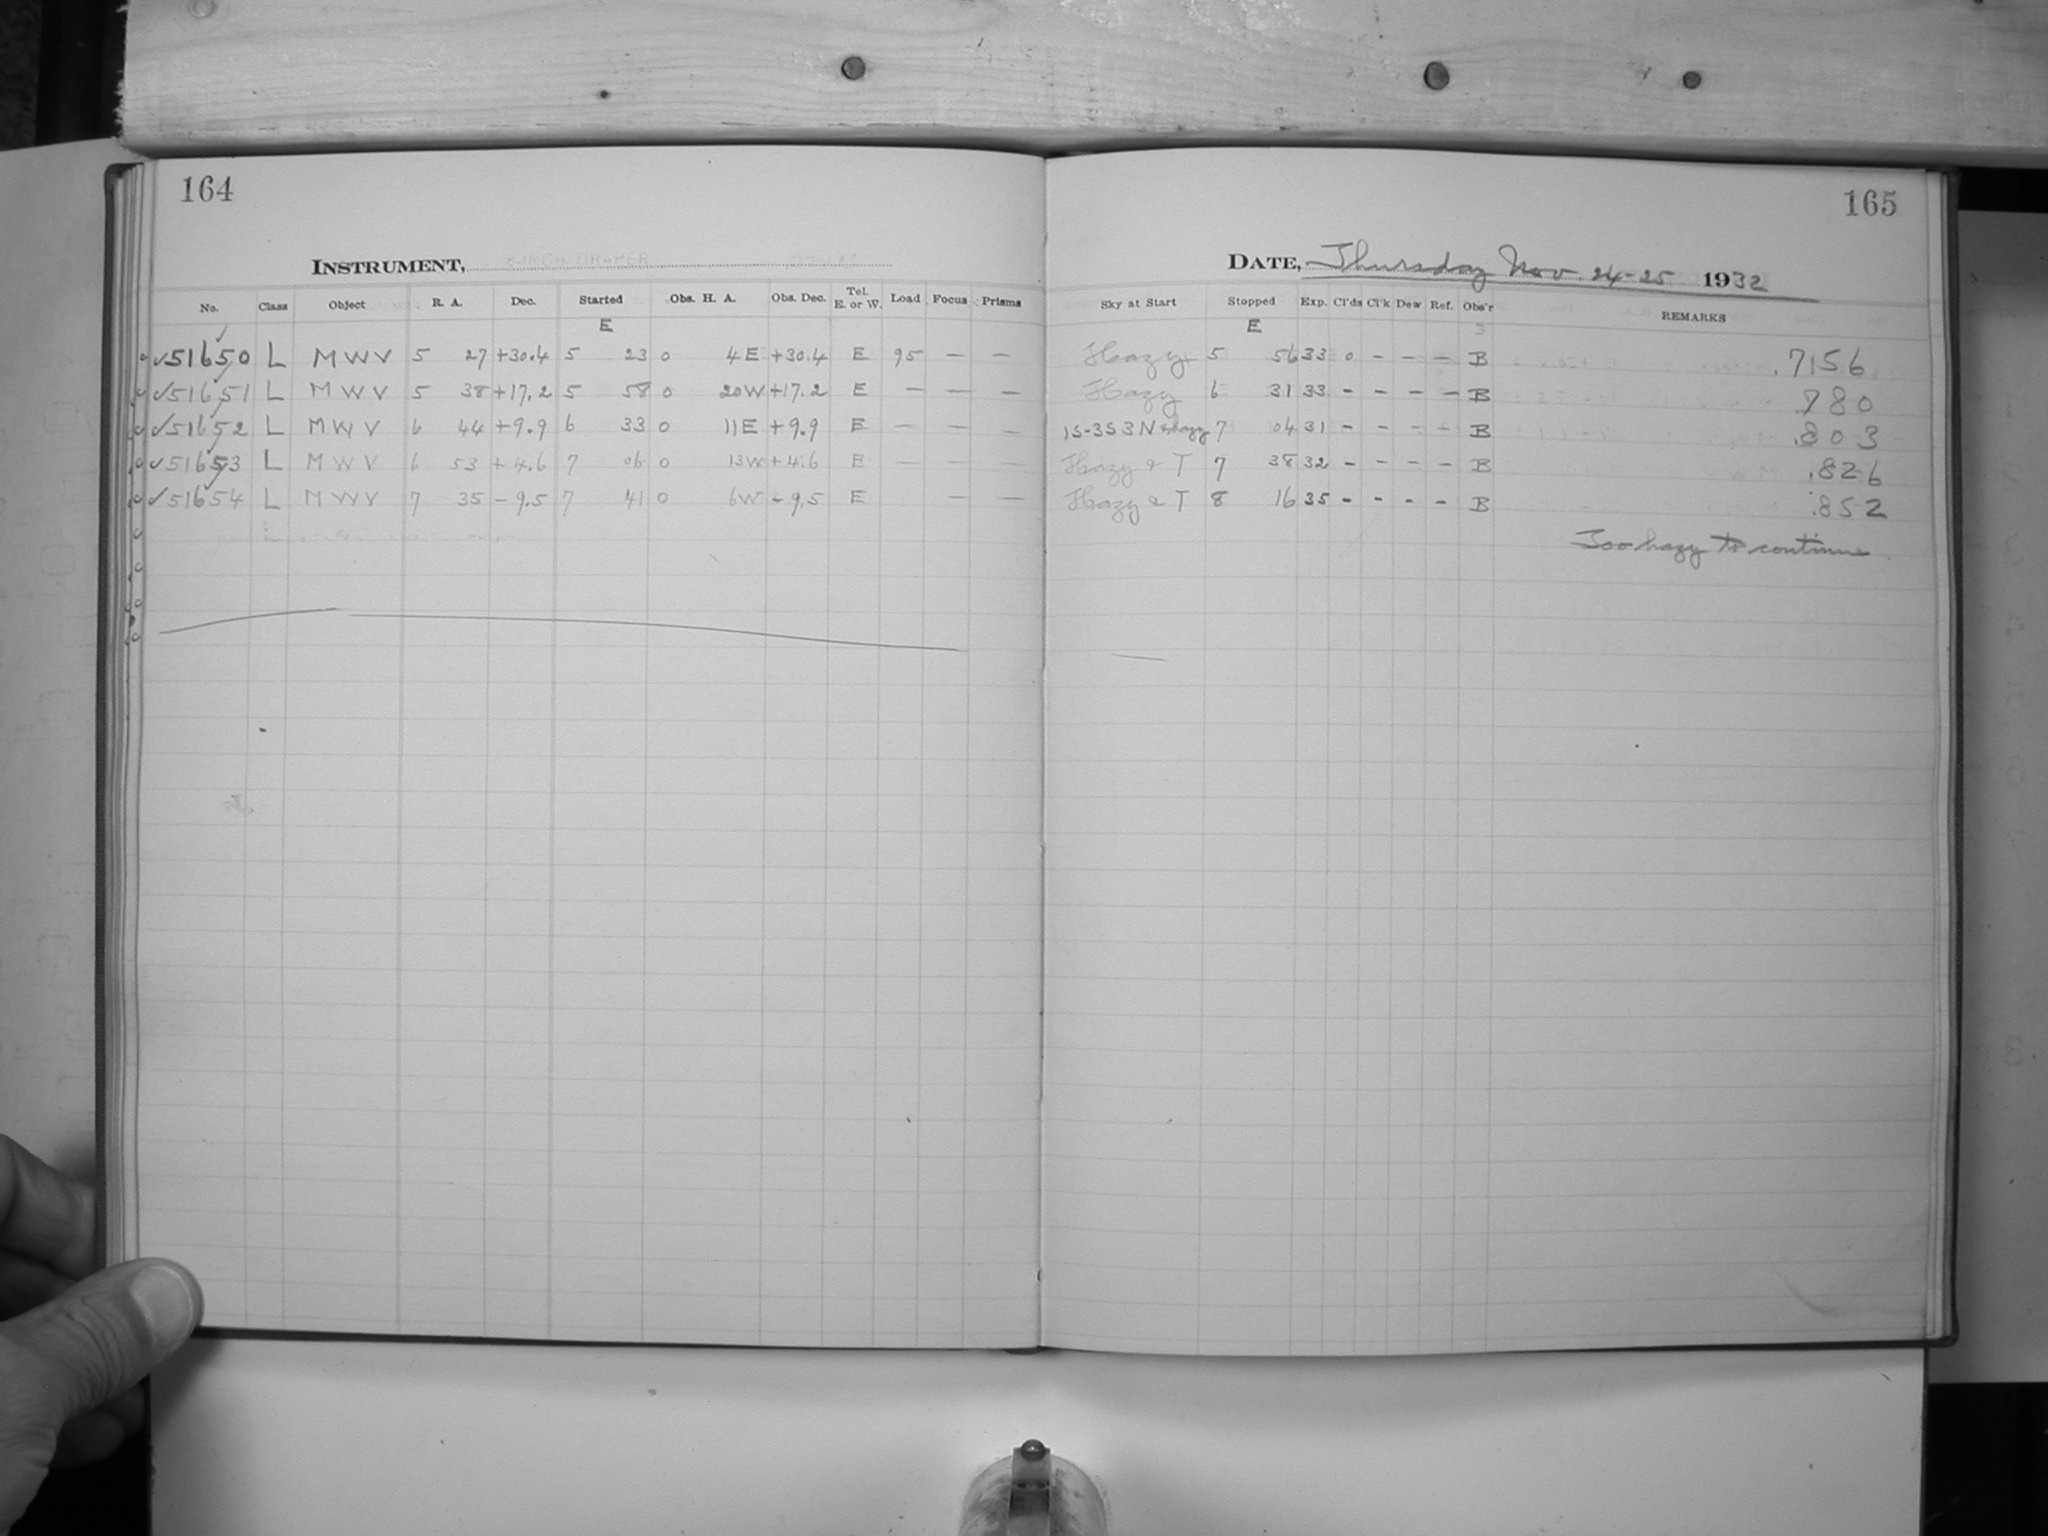 164
165
INSTRUMENT,
DATE, Thursday Nov. 24-25 1932
No. Class Object R. A. Dec. Started Obs. H. A. Obs. Dec. Tel. E. or W. Load Focus Prisms Sky at Start Stopped Exp. Cl'ds Cl'k Dew Ref. Obs'r REMARKS
E E
✓51650 L M W V 5 27 +30.4 5 23 0 4 E +30.4 E 95 — — Hazy 5 56 33 0 - - - B .7156
✓51651 L M W V 5 38 +17.2 5 58 0 20 W +17.2 E — — Hazy 6 31 33 - - - - B .780
✓51652 L M W V 6 44 +9.9 6 33 0 11 E +9.9 E — — — 1S-3S 3N & hazy 7 04 31 - - - - B .803
✓51653 L M W V 6 53 +4.6 7 06 0 13 W +4.6 E — — — Hazy & T 7 38 32 - - - - B .826
✓51654 L M W V 7 35 -9.5 7 41 0 6 W -9.5 E — — Hazy & T 8 16 35 - - - - B .852
Too hazy to continue.